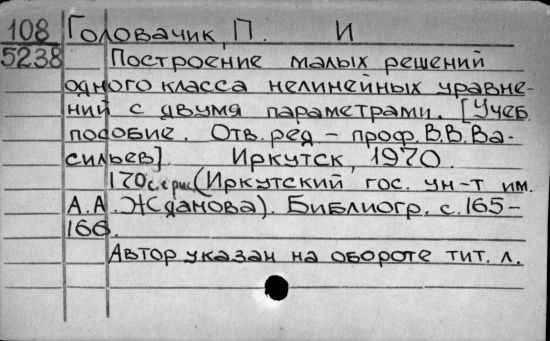 108 Головачик, П. И
5238 Построение малых решений
одного класса нелинейных уравне-
ний с двумя параметрами. [Учеб.
пособие. Отв. ред – проф. В.В. Ва-
сильев]. Иркутск, 1970.
170 с. с рис (Иркутский гос. ун-т им.
А.А. Жданова). Библиогр. с. 165–
166.
Автор указан на обороте тит. л.